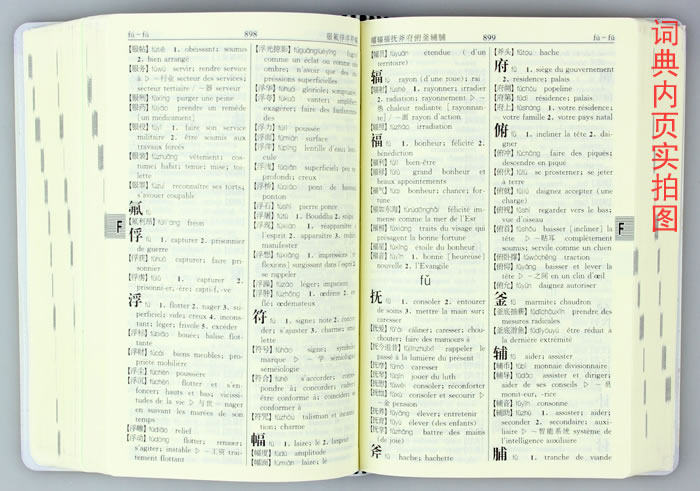 fú－fú 898
[服帖] fútiē 1. obéissant; soumis
2. bien arrangé
[服务] fúwù servir; rendre service
secteur des services;
secteur tertiaire
[服刑] fúxíng purger une peine
[服药] fúyào prendre un remède
[un médicament]
[服役] fúyì 1. faire son service
militaire 2. être soumis aux
travaux forcés
[服装] fúzhuāng vêtement; costume;
habit; tenue; mise; toilette
[服罪] fúzuì reconnaître ses torts,
s'avouer coupable
氟
[氟利昂] fúlì'áng fréon
俘
fú 1. capturer 2. prisonnier
de guerre
[俘获] fúhuò capturer; faire prisonnier
[俘虏] fúlǔ 1. capturer 2.
浮
fú 1. flotter 2. nager 3. superficiel;
4. inconstant;
léger; frivole 5. excéder
[浮标] fúbiāo bouée; balise flottante
[浮财] fúcái biens meubles; propriété
mobilière
[浮尘] fúchén poussière
[浮沉] fúchén flotter et s'enfoncer;
hauts et bas; vicissitudes
de la vie
en suivant les marées de son
temps
[浮雕] fúdiāo relief
[浮动] fúdòng flotter; remuer;
s'agiter; instable
traitement flottant
[浮光掠影] fúguānglüèyǐng
comme un éclair ou comme une
ombre; n'avoir que des impressions
superficielles
[浮华] fúhuá
[浮夸] fúkuā vanter; amplifier;
exagérer; faire des fanfaronnades
[浮力] fúlì poussée
[浮面] fúmiàn surface
[浮萍] fúpíng lentille d'eau; lenticule
[浮浅] fúqiǎn superficiel; peu
profond; creux
[浮桥] fúqiáo pont de bateaux;
ponton
[浮石] fúshí pierre ponce
[浮屠] fútú 1. Bouddha 2. stupa
[浮现] fúxiàn 1. réapparaître à
l'esprit 2. apparaître 3. se
manifester
[浮想] fúxiǎng
surgissant dans l'esprit 2.
se rappeler
[浮躁] fúzào léger; impatient
[浮肿] fúzhǒng
œdémateux
符
fú 1. signe; note 2. concorder;
s'ajuster 3. charme; amulette
[符号] fúhào signe; symbole;
marque
sémiologie
[符合] fúhé s'accorder; correspondre
à; concorder; cadrer;
être conforme à; coïncider; se
conformer à
[符咒] fúzhòu talisman et incantation;
charme
幅
fú 1. laize; lé 2. largeur
[幅度] fúdù amplitude
[幅面] fúmiàn laize; lé
蝠辐福抚斧府俯釜辅脯 899 fú－fǔ
[幅员] fúyuán étendue (d'un
territoire)
辐
fú rayon (d'une roue); rai
[辐射] fúshè 1. rayonner; irradier
2. radiation; rayonnement
chaleur radiante [rayonnante]
rayon d'action
[辐照] fúzhào irradiation
福
fú 1. bonheur; félicité 2.
bénédiction
[福利] fúlì bien-être
[福禄] fúlù grand bonheur et
beaux appointements
[福气] fúqi bonheur; chance; fortune
[福如东海] fúrúdōnghǎi félicité immense
comme la mer de l'Est
[福相] fúxiàng traits du visage qui
présagent la bonne fortune
[福星] fúxīng étoile du bonheur
[福音] fúyīn 1. bonne [heureuse]
nouvelle 2. l'Évangile
fǔ
抚
fǔ 1. consoler 2. entourer
de soins 3. mettre la main sur;
caresser
[抚爱] fǔ'ài câliner; caresser; chouchouter;
faire des mamours à
[抚今追昔] fǔjīnzhuīxī rappeler le
passé à la lumière du présent
[抚摩] fǔmó caresser
[抚琴] fǔqín jouer du luth
[抚慰] fǔwèi consoler; réconforter
[抚恤] fǔxù consoler et secourir
金 pension
[抚养] fǔyǎng élever; entretenir
[抚育] fǔyù élever (des enfants)
[抚掌] fǔzhǎng battre des mains
(de joie)
斧
fǔ hache; hachette
[斧头] fǔtou hache
府
fǔ 1. siège du gouvernement
2. résidence; palais
[府绸] fǔchóu popeline
[府第] fǔdì résidence; palais
[府上] fǔshàng 1. votre résidence;
votre famille 2. votre pays natal
俯
fǔ 1. incliner la tête 2. daigner
[俯冲] fǔchōng faire des piqués;
descendre en piqué
[俯伏] fǔfú se prosterner; se jeter
à terre
[俯就] fǔjiù daignez accepter (une
charge)
[俯视] fǔshì regarder vers le bas;
vue d'oiseau
[俯首] fǔshǒu baisser [incliner] la
tête 贴耳 complètement
soumis; servile comme un chien
[俯卧撑] fǔwòchēng traction
[俯仰] fǔyǎng baisser et lever la
tête 之间 en un clin d'œil
[俯允] fǔyǔn daignez autoriser
釜
fǔ marmite; chaudron
[釜底抽薪] fǔdǐchōuxīn prendre des
mesures radicales
[釜底游鱼] fǔdǐyóuyú être réduit à
la dernière extrémité
辅
fǔ aider; assister
[辅币] fǔbì monnaie divisionnaire
[辅导] fǔdǎo assister et diriger;
aider de ses conseils 员
moniteur, -rice
[辅音] fǔyīn consonne
[辅助] fǔzhù 1. assister; aider;
seconder 2. secondaire; auxiliaire
智能系统 système de
l'intelligence auxiliaire
脯
fǔ 1. tranche de viande
F
F
词典内页实拍图